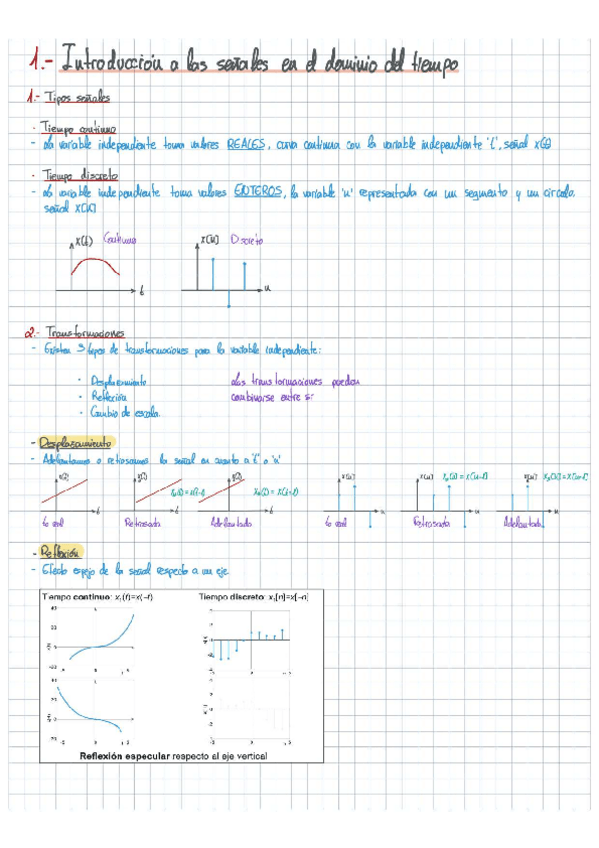 1.- Introducción a las señales en el dominio del tiempo
1.- Tipos señales
· Tiempo continuo
- La variable independiente toma valores REALES, curva continua con la variable independiente 't', señal x(t)
· Tiempo discreto
- La variable independiente toma valores ENTEROS, la variable 'n' representada con un segmento y un círculo.
señal x[n]
x(t) Continuo x[n] Discreto
t n
2.- Transformaciones
- Existen 3 tipos de transformaciones para la variable independiente:
· Desplazamiento Las transformaciones pueden
· Reflexión combinarse entre sí
· Cambio de escala.
- Desplazamiento
- Adelantamos o retrasamos la señal en cuanto a 't' o 'n'
Retrasada Adelantada Retrasada Adelantada
- Reflexión
- Efecto espejo de la señal respecto a un eje
Tiempo continuo: x₁(t)=x(-t) Tiempo discreto: x₁[n]=x[-n]
Reflexión especular respecto al eje vertical